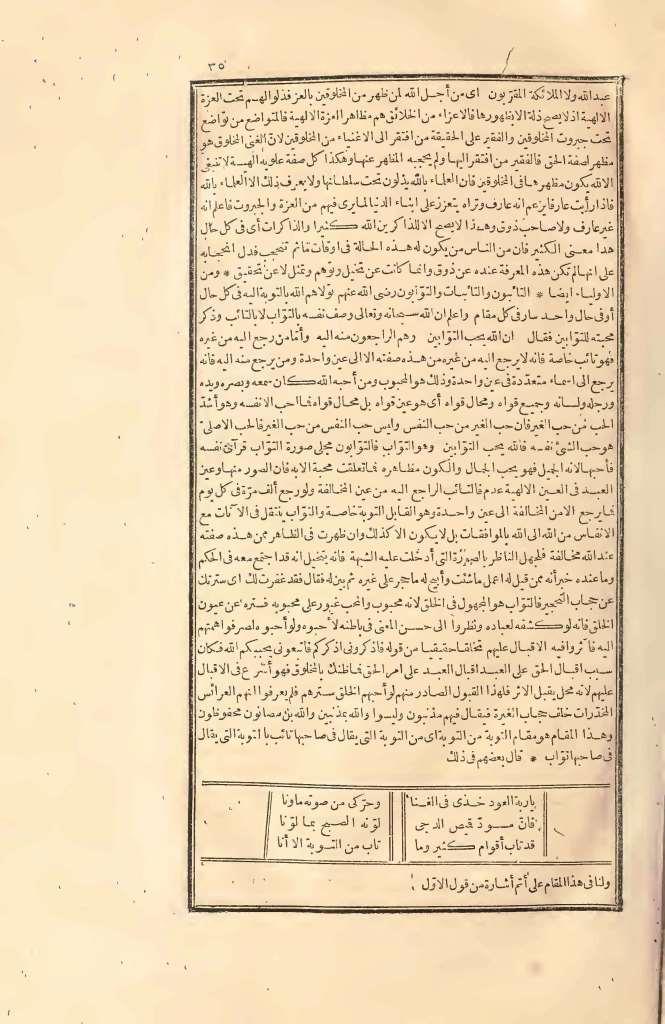 ٣٥
عبد الله ولا الملائكة المقرّبون أى من أجل الله لمن ظهر من المخلوقين بالعز فذلوا لهم تحت العزة
الالهية اذ لا يصح ذلة الا بظهورها فالاعزاء من الخلائق هم مظاهر العزة الالهية فالتواضع من تواضع
تحت جبروت المخلوقين والفقير على الحقيقة من افتقر الى الاغنياء من المخلوقين لانّ الغنى المخلوق هو
مظهر لصفة الحق فالفقير من افتقر اليها ولم يحجبه المظاهر عنها وهكذا كل صفة علوية الهية لا تنبغى
الا لله يكون مظهرها فى المخلوقين فان العلماء بالله يذلون تحت سلطانها ولا يعرف ذلك الا العلماء بالله
فاذا رأيت عارفا يزعم انه عارف وتراه يتعزز على ابناء الدنيا لما يرى فيهم من العزة والجبروت فاعلم انه
غير عارف ولا صاحب ذوق وهذا لا يصح الا للذاكرين الله كثيرا والذاكرات أى فى كل حال
هذا معنى الكثير فان من الناس من يكون له هذه الحالة فى اوقات ما ثم تنحجب فدل انحجابه
على انها لم تكن هذه المعرفة عنده عن ذوق وانما كانت عن تخيل وتوهم وتمثل لا عن تحقيق * ومن
الاولياء ايضا * التائبون والتائبات والتوّابون رضى الله عنهم تولاهم الله بالتوبة اليه فى كل حال
أو فى حال واحد سار فى كل مقام واعلم ان الله سبحانه وتعالى وصف نفسه بالتوّاب لا بالتائب وذكر
محبته للتوّابين فقال ان الله يحب التوّابين وهم الراجعون منه اليه وأمّا من رجع اليه من غيره
فهو تائب خاصة فانه لا يرجع اليه من غيره من هذه صفته الا الى عين واحدة ومن يرجع منه اليه فانه
يرجع الى اسماء متعدّدة فى عين واحدة وذلك هو المحبوب ومن أحبه الله كان سمعه وبصره ويده
ورجله ولسانه وجميع قواه ومحال قواه أى هو عين قواه بل محال قواه فما احب الا نفسه وهو أشدّ
الحب من حب الغير فان حب الغير من حب النفس وليس حب النفس من حب الغير فالحب الاصلى
هو حب الشئ نفسه فالله يحب التوّابين وهو التوّاب فالتوّابون مجلى صورة التوّاب فرأى نفسه
فأحبها لانه الجميل فهو يحب الجمال والكون مظاهره فما تعلقت محبة الا به فان الصور منها وعين
العبد فى العين الالهية عدم فالتائب الراجع اليه من عين المخالفة ولو رجع ألف مرّة فى كل يوم
فما يرجع الا من المخالفة الى عين واحدة وهو القابل التوبة خاصة والتواب ينتقل فى الآنات مع
الانفاس من الله الى الله بالموافقات بل لا يكون الا كذلك وان ظهرت فى الظاهر ممن هذه صفته
عند الله مخالفة فلجهل الناظر بالصورة التى أدخلت عليه الشبهة فانه يتخيل انه قد اجتمع معه فى الحكم
وما عنده خبر أنه ممن قيل له اعمل ما شئت وأبيح له ما حجر على غيره ثم بين له فقال فقد غفرت لك اى سترتك
عن حجاب التحجير فالتوّاب هو المجهول فى الخلق لانه محبوب والمحب غيور على محبوبه فستره عن عيون
الخلق فانه لو كشفه لعباده ونظروا الى حسن المعنى فى باطنه لأحبوه ولو أحبوه لصرفوا همتهم
اليه فأثروا فيه الاقبال عليهم تخلقا حقيقيا من قوله فاذكرونى اذكركم فاتبعونى يحببكم الله فكان
سبب اقبال الحق على العبد اقبال العبد على امر الحق فما ظنك بالمخلوق فهو أسرع فى الاقبال
عليهم لانه محل يقبل الاثر فلهذا القبول الصادر منهم لو أحبهم الخلق سترهم فلم يعرفوا انهم العرائس
المخدّرات خلف حجاب الغيرة فيقال فيهم مذنبون وليسوا والله بمذنبين والله بل مصانون محفوظون
وهذا المقام هو مقام التوبة من التوبة اى من التوبة التى يقال فى صاحبها تائب بالتوبة التى يقال
فى صاحبها توّاب * قال بعضهم فى ذلك
ياربة العود خذى فى الغنا وحرّكى من صوته ماونا
فانّ مسودّ قميص الدجى لوّنه الصبح بما لوّنا
قد تاب أقوام كثير وما تاب من التوبة الا أنا
ولنا فى هذا المقام على أتم أشارة من قول الاوّل